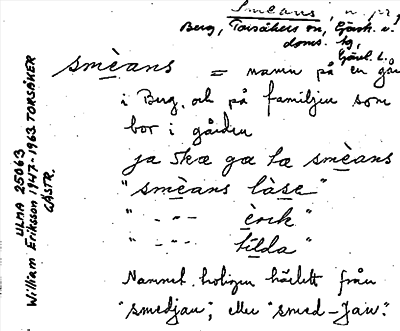 Smèans, n. pr
Berg, Torsåkers sn, Gästr. v.
doms. hg,
Gävl. L.
smèans = namn på en går
i Berg, och på familjen som
bor i gården
ja ska ga ta smèans
"smèans làse"
" - " - èrik"
" - " - tilda"
Namnet troligen härlett från
"smedjan", eller "smed-Jan".
ULMA 25063
William Eriksson 1947-1963 TORSÅKER
GÄSTR.